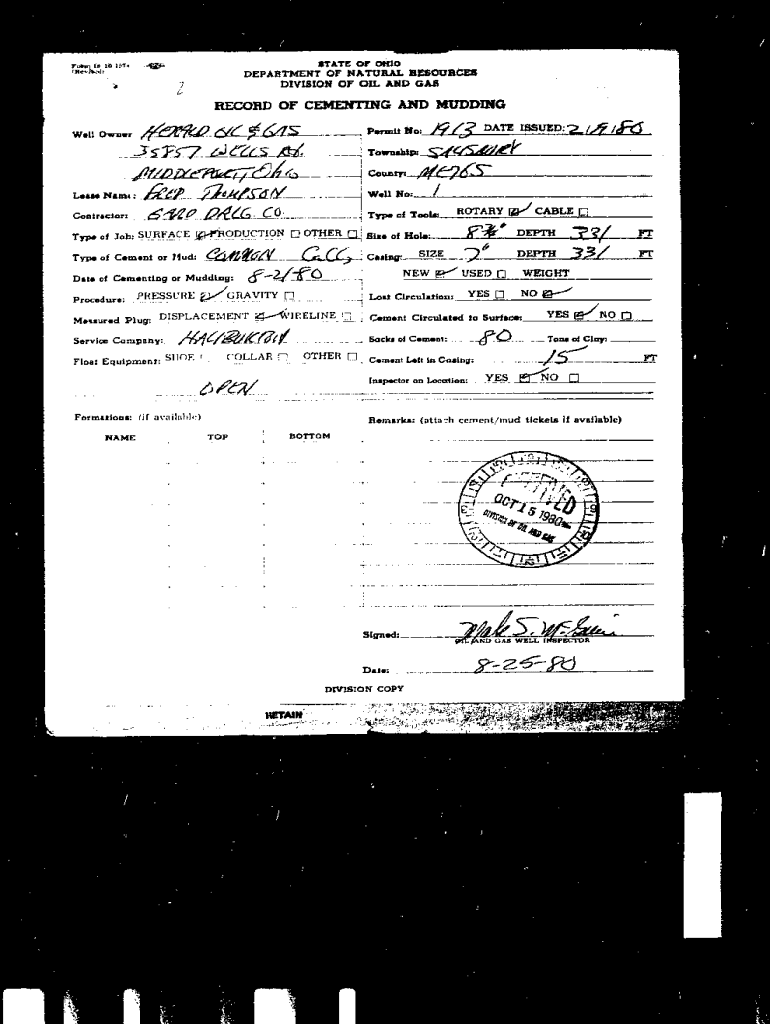 STATE OF OHIO
DEPARTMENT OF NATURAL RESOURCES
DIVISION OF OIL AND GAS
2
RECORD OF CEMENTING AND MUDDING
Well Owner HERALD OIL & GAS Permit No: 1913 DATE ISSUED:
35857 WELLS Rd. Township: SALISBURY
MIDDLEPORT, Ohio County: MEIGS
Lease Name: FRED THOMPSON Well No: 1
Contractor: DRLG CO. Type of Tools: ROTARY ☑ CABLE ☐
Type of Job: SURFACE ☑ PRODUCTION ☐ OTHER ☐ Size of Hole: 8¾" DEPTH 331 FT
Type of Cement or Mud: COMMON Casing: SIZE 7" DEPTH 331 FT
Date of Cementing or Mudding: 8-21-80 NEW ☑ USED ☐ WEIGHT
Procedure: PRESSURE ☑ GRAVITY ☐ Lost Circulation: YES ☐ NO ☑
Measured Plug: DISPLACEMENT ☑ WIRELINE ☐ Cement Circulated to Surface: YES ☑ NO ☐
Service Company: HALIBURTON Sacks of Cement: 80 Tons of Clay:
Float Equipment: SHOE COLLAR ☐ OTHER ☐ Cement Left in Casing: 15 FT
OPEN Inspector on Location: YES ☑ NO ☐
Formations: (if available) Remarks: (attach cement/mud tickets if available)
NAME TOP BOTTOM
RECEIVED
OCT 15 1980
DIVISION OF OIL AND GAS
Signed: Mark S. McGuire
OIL AND GAS WELL INSPECTOR
Date: 8-25-80
DIVISION COPY
RETAIN